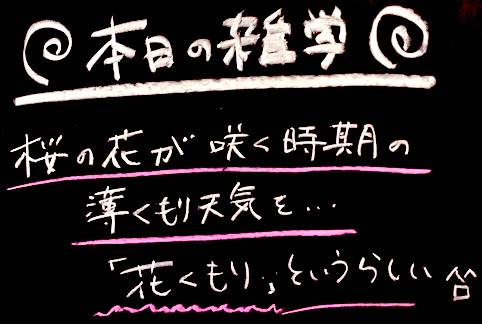 本日の雑学
桜の花が咲く時期の
薄くもり天気を…
「花くもり」というらしい